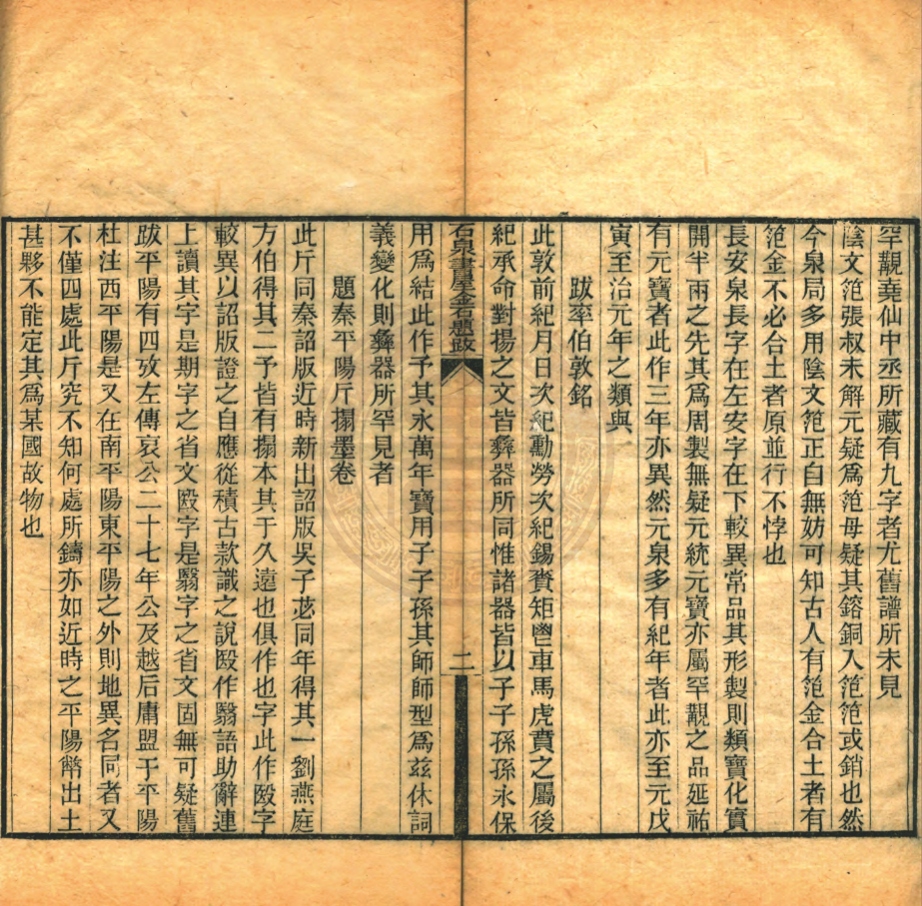 罕覯堯仙中丞所藏有九字者尤舊譜所未見
陰文笵張叔未解元疑爲笵母疑其鎔銅入笵笵或銷也然
今泉局多用陰文笵正自無妨可知古人有笵金合土者有
笵金不必合土者原並行不悖也
長安泉長字在左安字在下較異常品其形製則類寶化實
開半兩之先其爲周製無疑元統元寶亦屬罕覯之品延祐
有元寶者此作三年亦異然元泉多有紀年者此亦至元戊
寅至治元年之類與
跋率伯敦銘
此敦前紀月日次紀勳勞次紀錫賚矩鬯車馬虎賁之屬後
紀承命對揚之文皆彝器所同惟諸器皆以子子孫孫永保
石泉書屋金石題跋
二
用爲結此作予其永萬年寶用子子孫其師師型爲兹休詞
義變化則彝器所罕見者
題秦平陽斤搨墨卷
此斤同秦詔版近時新出詔版吳子苾同年得其一劉燕庭
方伯得其二予皆有搨本其于久遠也俱作也字此作殹字
較異以詔版證之自應從積古款識之說殹作翳語助辭連
上讀其字是期字之省文殹字是翳字之省文固無可疑舊
跋平陽有四攷左傳哀公二十七年公及越后庸盟于平陽
杜注西平陽是又在南平陽東平陽之外則地異名同者又
不僅四處此斤究不知何處所鑄亦如近時之平陽幣出土
甚夥不能定其爲某國故物也